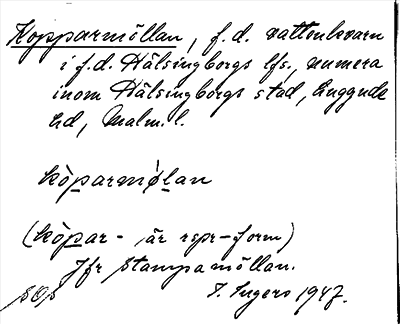 Kopparmöllan, f.d. vattenkvarn
i f.d. Hälsingborgs lfs., numera
inom Hälsingborgs stad, Luggude
hd, Malm. l.
köparmø̀lan
(köpar- är rspr-form)
Jfr Stampamöllan.
I. Ingers 1947.